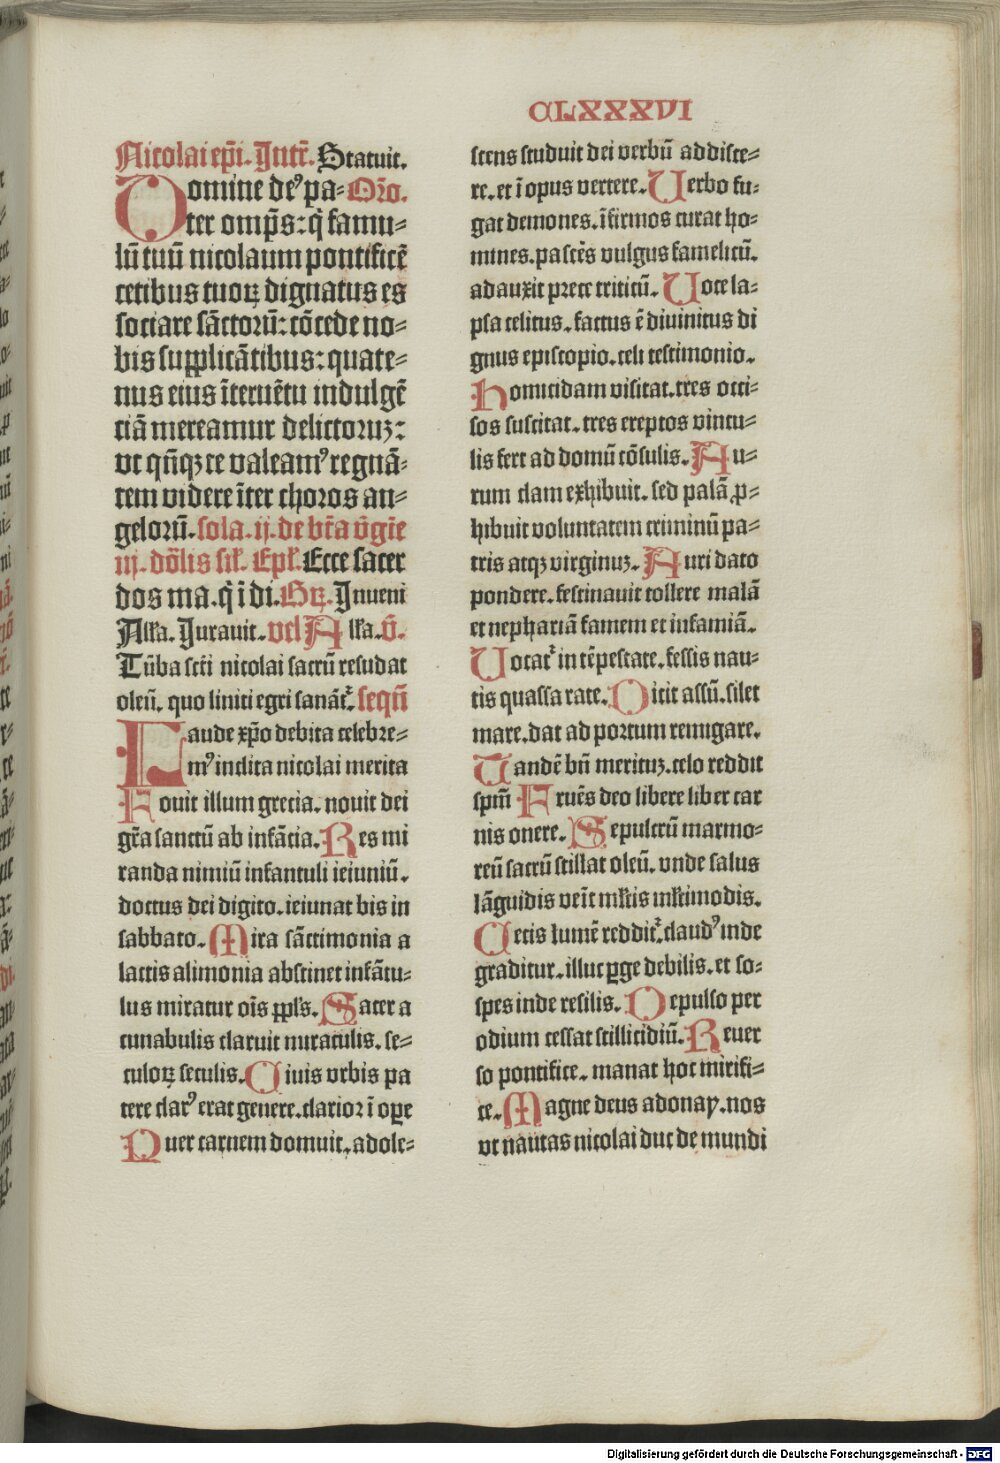 CLXXXVI
Nicolai ep̄i. Intr̄. Statuit.
Domine deꝰ pa= Or̄o.
ter omp̄s: q̄ famu=
lū tuū nicolaum pontificē
cetibus tuoꝝ dignatus es
sociare sāctorū: cōcede no=
bis supplicātibus: quate=
nus eius īteruētu indulgē
ciā mereamur delictoruꝫ:
vt qn̄qꝫ te valeamꝰ regnā=
tem videre īter choros an=
gelorū. sola. ij. de bt̄a v̄gīe
iij. dōlis sil̄. Epl̄. Ecce sacer
dos ma. q̄ i di. Gꝝ. Inueni
Alla. Iurauit. vel Alla. v̄.
Tūba sc̄ti nicolai sacrū resudat
oleū. quo liniti egri sanāt᷑. seqū
Laude xp̄o debita celebre=
mꝰ inclita nicolai merita
Fouit illum grecia. nouit dei
gr̄a sanctū ab infācia. Res mi
randa nimiū infantuli ieiuniū.
doctus dei digito. ieiunat bis in
sabbato. Mira sāctimonia a
lactis alimonia abstinet infātu=
lus miratur oīs ppl̄s. Sacer a
cunabulis claruit miraculis. se=
culoꝝ seculis. Ciuis vrbis pa
tere clarꝰ erat genere. clarior ī oꝑe
Quer carnem domuit. adole=
scens studuit dei verbū addisce=
re. et ī opus vertere. Uerbo fu=
gat demones. īfirmos curat ho=
mines. pascēs vulgus famelicū.
adauxit prece triticū. Uoce la=
psa celitus. factus ē diuinitus di
gnus episcopio. celi testimonio.
Homicidam visitat. tres occi=
sos suscitat. tres ereptos vincu=
lis fert ad domū cōsulis. Au=
rum clam exhibuit. sed palā ꝓ=
hibuit voluntatem criminū pa=
tris atqꝫ virginuꝫ. Auri dato
pondere. festinauit tollere malā
et nephariā famem et infamiā.
Uocat᷑ in tēpestate. fessis nau=
tis quassa rate. Dicit assū. silet
mare. dat ad portum remigare.
Tandē bn̄ merituꝫ. celo reddit
spm̄ Fruēs deo libere liber car
nis onere. Sepulcrū marmo=
reū sacrū stillat oleū. vnde salus
lāguidis veīt ml̄tis ml̄timodis.
Cecis lumē reddit᷑. claudꝰ inde
graditur. illuc ꝑge debilis. et so=
spes inde resilis. Depulso per
odium cessat stillicidiū. Reuer
so pontifice. manat hoc mirifi=
ce. Magne deus adonay. nos
vt nautas nicolai duc de mundi
Digitalisierung gefördert durch die Deutsche Forschungsgemeinschaft - DFG